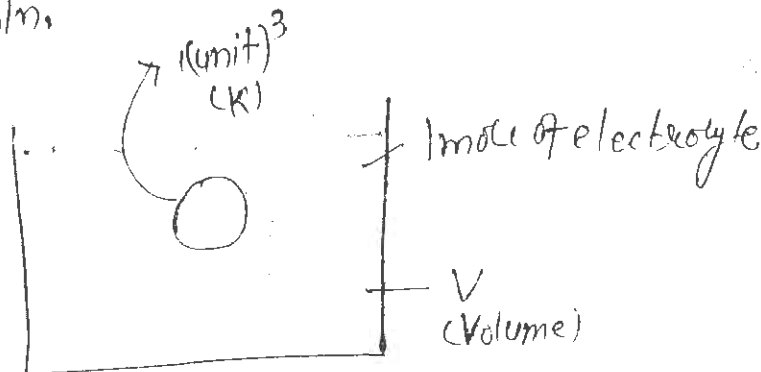 1(unit)³
(K)
1 mole of electrolyte
V
(Volume)